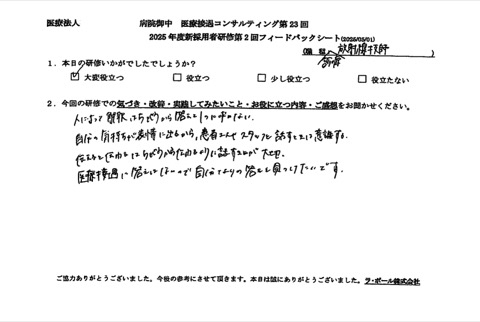 医療法人 病院御中 医療接遇コンサルティング第23回
2025年度新採用者研修第2回フィードバックシート(2025/05/01)
(職種 放射線技師)
1．本日の研修いかがでしたでしょうか？
☑大変役立つ □役立つ □少し役立つ □役立たない
2．今回の研修での気づき・改善・実践してみたいこと・お役に立つ内容・ご感想をお聞かせください。
人によって解釈はちがうから答えは1つじゃない。
自分の気持ちが表情に出るから、患者さんやスタッフと話すときは意識する。
伝えると伝わるはちがうから伝わるように話すことが大切。
医療接遇に答えはないので自分なりの答えを見つけたいです。
ご協力ありがとうございました。今後の参考にさせて頂きます。本日は誠にありがとうございました。ラ・ポール株式会社